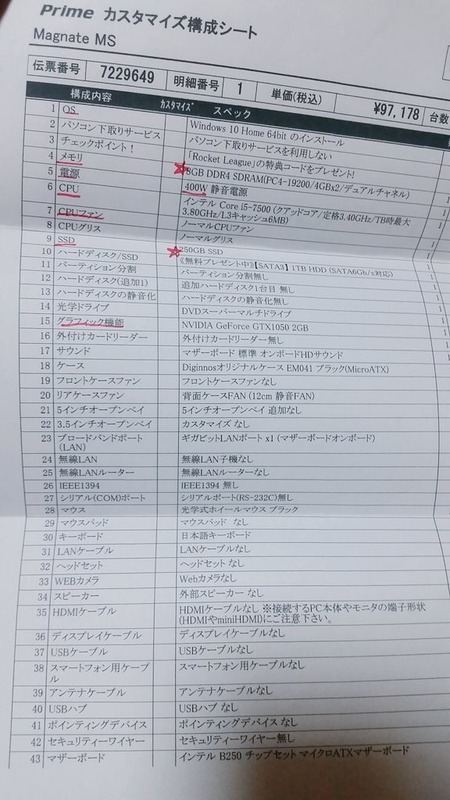 Prime カスタマイズ構成シート
Magnate MS
伝票番号 7229649 明細番号 1 単価(税込) ¥97,178 台数
構成内容 カスタマイズ スペック
1 OS Windows 10 Home 64bit のインストール
2 パソコン下取りサービス パソコン下取りサービスを利用しない
3 チェックポイント! 「Rocket League」の特典コードをプレゼント!
4 メモリ 8GB DDR4 SDRAM(PC4-19200/4GBx2/デュアルチャネル)
5 電源 400W 静音電源
6 CPU インテル Core i5-7500 (クアッドコア/定格3.40GHz/TB時最大
3.80GHz/L3キャッシュ6MB)
7 CPUファン ノーマルCPUファン
8 CPUグリス ノーマルグリス
9 SSD 250GB SSD
10 ハードディスク/SSD 《無料プレゼント中》【SATA3】1TB HDD (SATA6Gb/s対応)
11 パーティション分割 パーティション分割無し
12 ハードディスク(追加1) 追加ハードディスク1台目 無し
13 ハードディスクの静音化 ハードディスクの静音化無し
14 光学ドライブ DVDスーパーマルチドライブ
15 グラフィック機能 NVIDIA GeForce GTX1050 2GB
16 外付けカードリーダー 外付けカードリーダー無し
17 サウンド マザーボード 標準 オンボードHDサウンド
18 ケース Diginnosオリジナルケース EM041 ブラック(MicroATX)
19 フロントケースファン フロントケースファンなし
20 リアケースファン 背面ケースFAN (12cm 静音FAN)
21 5インチオープンベイ 5インチオープンベイ 追加なし
22 3.5インチオープンベイ カスタマイズ なし
23 ブロードバンドポート ギガビットLANポート x1 (マザーボードオンボード)
(LAN)
24 無線LAN 無線LAN子機なし
25 無線LANルーター 無線LANルーターなし
26 IEEE1394 IEEE1394 無し
27 シリアル(COM)ポート シリアルポート(RS-232C)無し
28 マウス 光学式ホイールマウス ブラック
29 マウスパッド マウスパッド なし
30 キーボード 日本語キーボード
31 LANケーブル LANケーブルなし
32 ヘッドセット ヘッドセット なし
33 WEBカメラ Webカメラなし
34 スピーカー 外部スピーカー なし
35 HDMIケーブル HDMIケーブルなし ※接続するPC本体やモニタの端子形状
(HDMIやminiHDMI)にご注意下さい。
36 ディスプレイケーブル ディスプレイケーブルなし
37 USBケーブル USBケーブルなし
38 スマートフォン用ケーブ スマートフォン用ケーブルなし
ル
39 アンテナケーブル アンテナケーブルなし
40 USBハブ USBハブ なし
41 ポインティングデバイス ポインティングデバイス なし
42 セキュリティーワイヤー セキュリティーワイヤー無し
43 マザーボード インテル B250 チップセット マイクロATXマザーボード